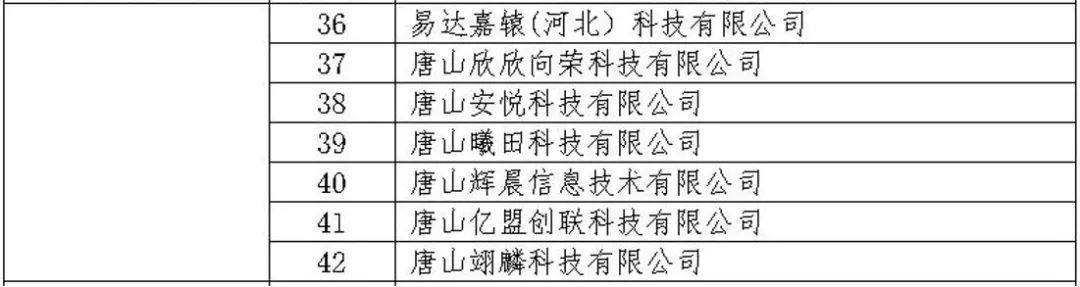 36 易达嘉辕(河北）科技有限公司
37 唐山欣欣向荣科技有限公司
38 唐山安悦科技有限公司
39 唐山曦田科技有限公司
40 唐山辉晨信息技术有限公司
41 唐山亿盟创联科技有限公司
42 唐山翊麟科技有限公司